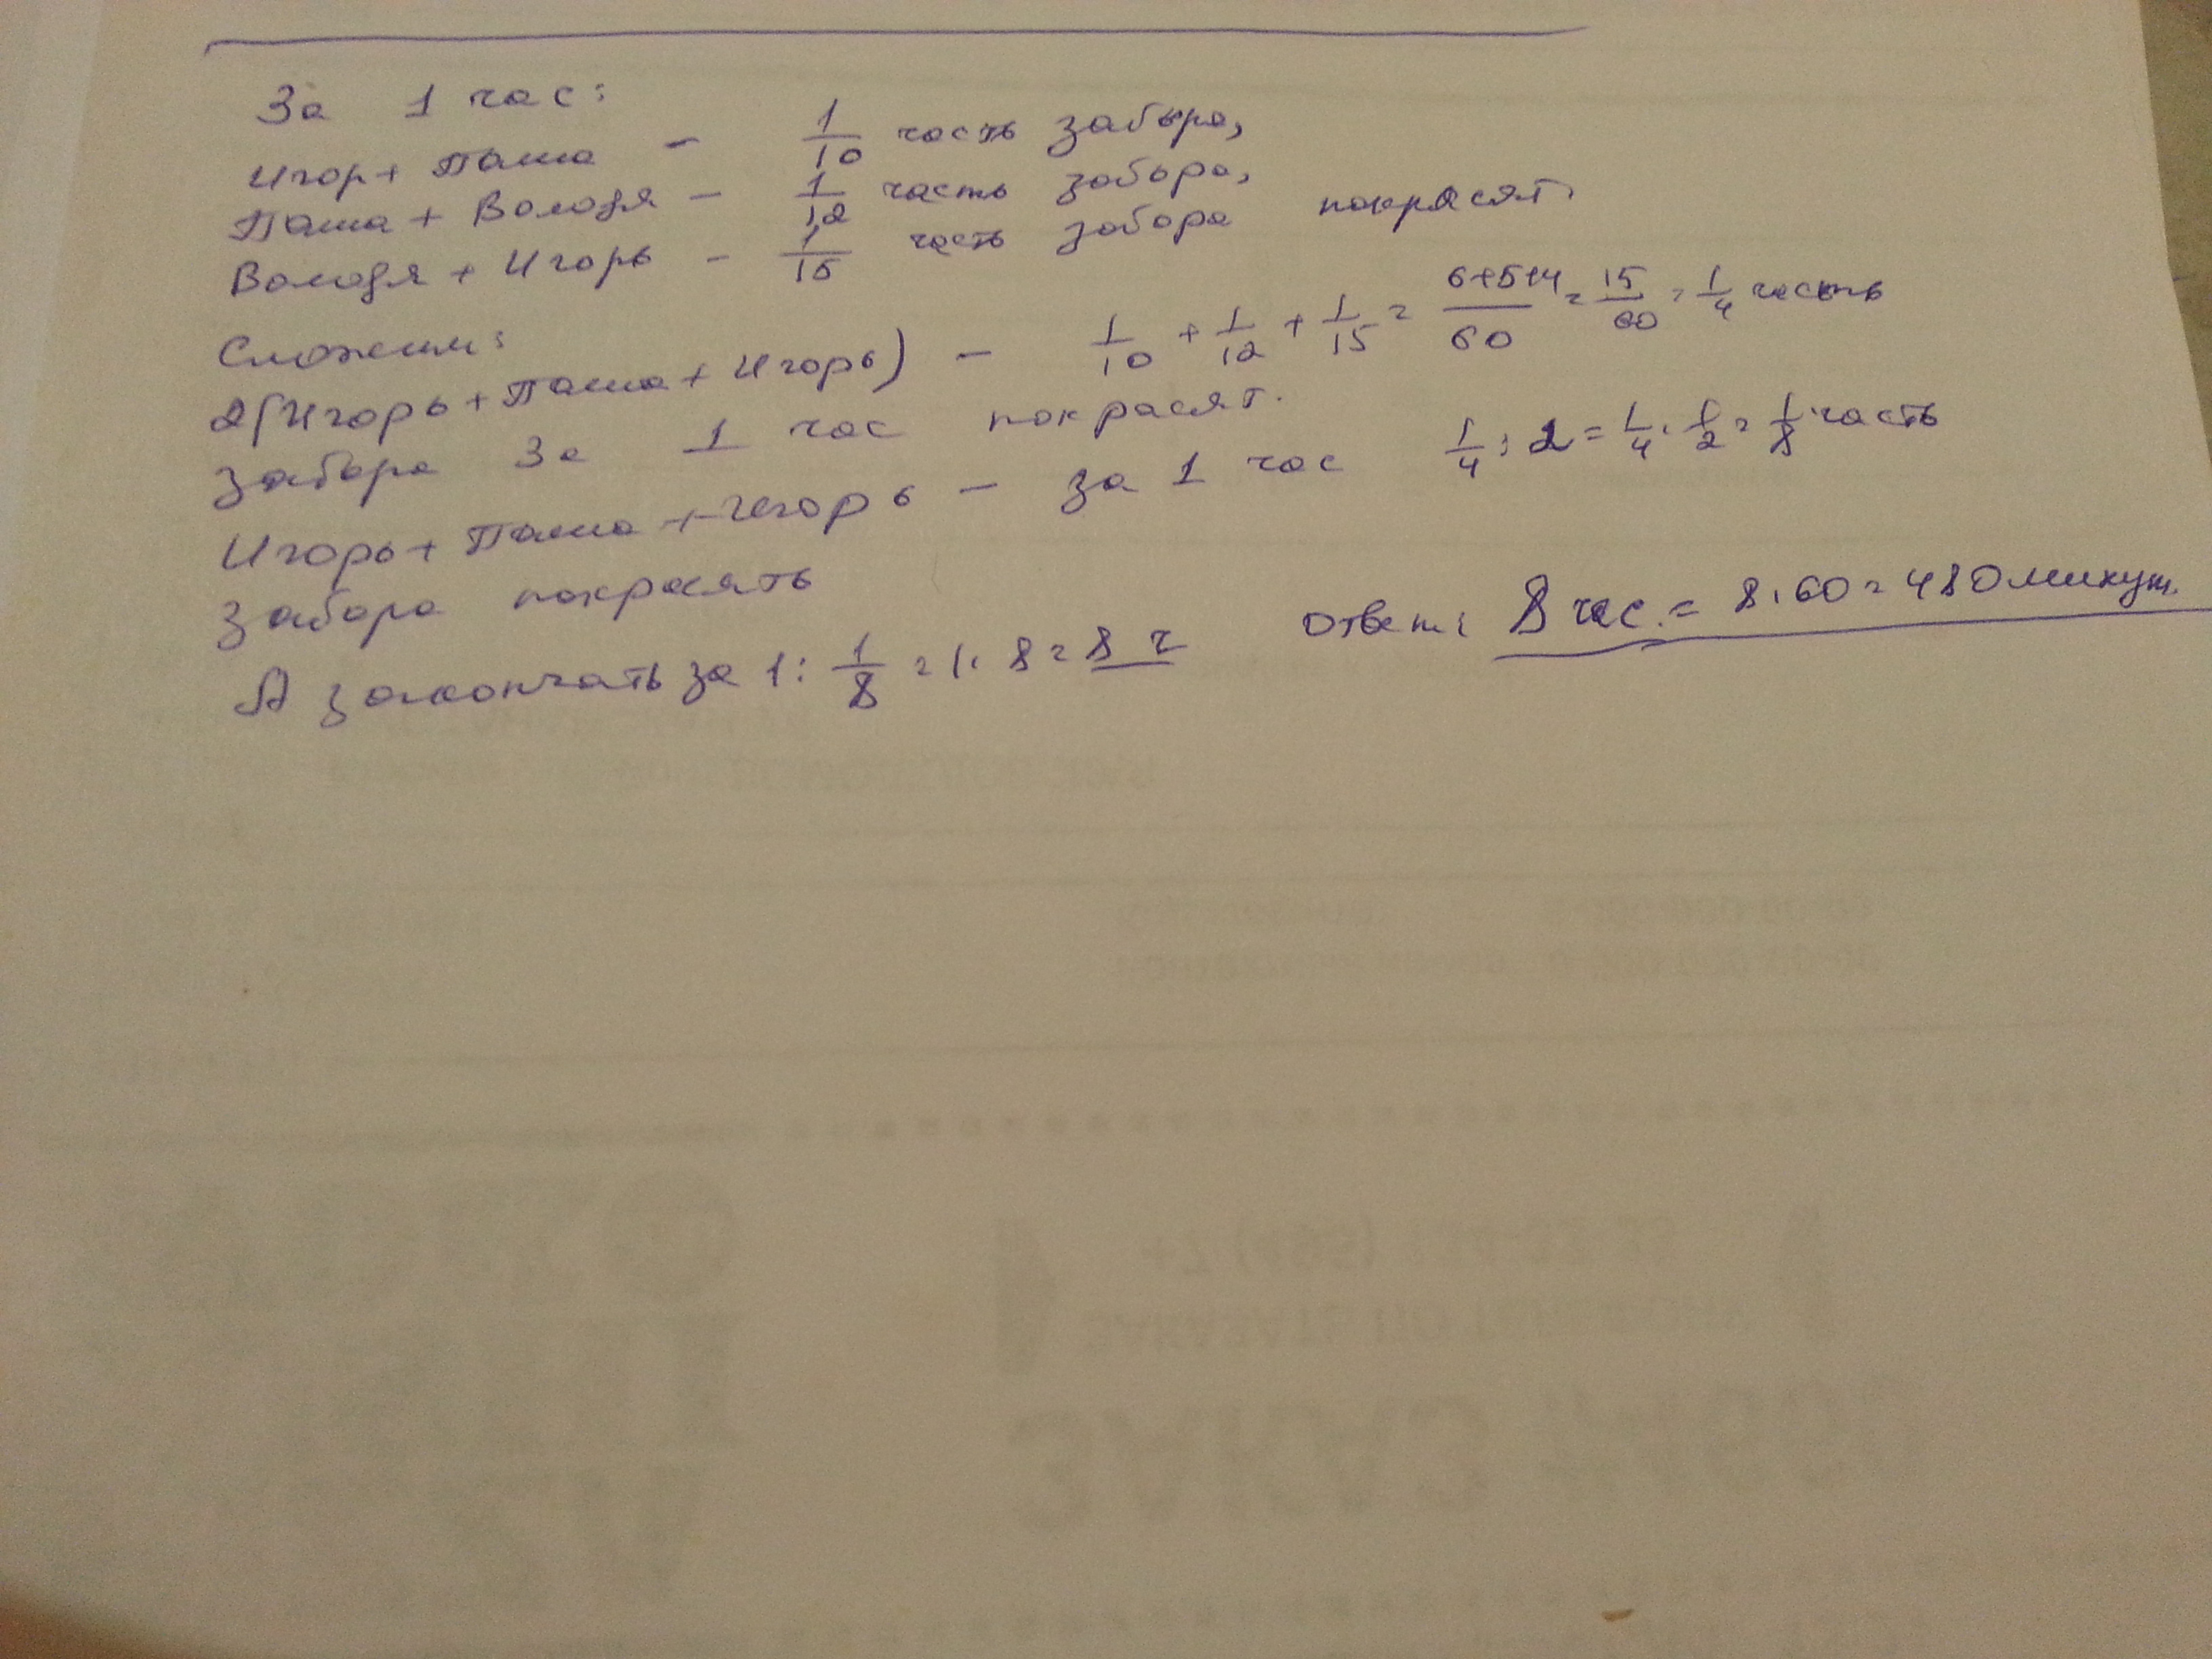 За 1 час:
Игор + Паша - 1/10 часть забора,
Паша + Володя - 1/12 часть забора,
Володя + Игорь - 1/15 часть забора покрасят.
Сложим:
2(Игорь + Паша + Игорь) - 1/10 + 1/12 + 1/15 = 6+5+4/60 = 15/60 = 1/4 часть
забора за 1 час покрасят.
Игорь + Паша + Игорь - за 1 час 1/4 : 2 = 1/4 · 1/2 = 1/8 часть
забора покрасять
А закончать за 1 : 1/8 = 1 · 8 = 8 ч
Ответ: 8 час. = 8 · 60 = 480 минут.